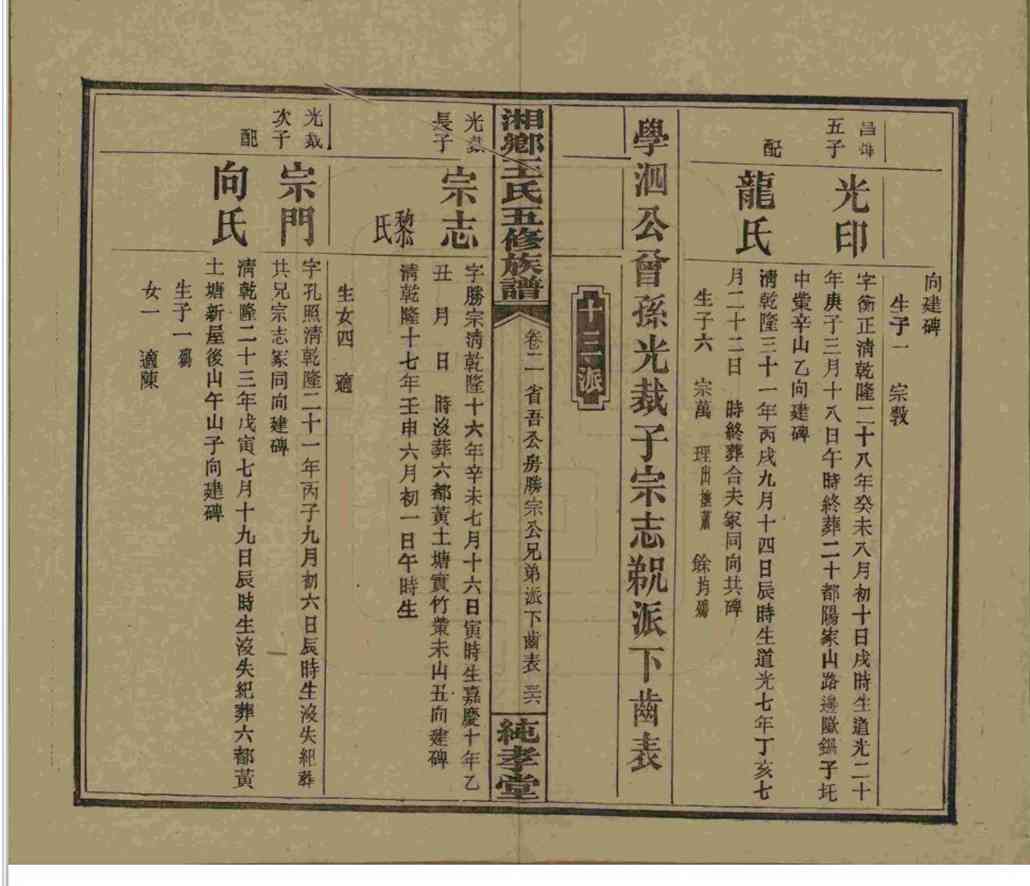 向建碑
生子一 宗敎
昌
五子
光印
字衡正淸乾隆二十八年癸未八月初十日戌時生道光二十
年庚子三月十八日午時終葬二十都陽家山路邊歐
中藔辛山乙向建碑
配
龍氏
淸乾隆三十一年丙戌九月十四日辰時生道光七年丁亥七
月二十二日 時終葬合夫冢同向共碑
生子六 宗萬 理出 餘均殤
學泗公曾孫光裁子宗志覜派下齒表
十三派
湘鄉王氏五修族譜
卷二 省吾公房勝宗公兄弟派下齒表
純孝堂
光裁
長子
宗志
字勝宗淸乾隆十六年辛未七月十六日寅時生嘉慶十年乙
丑 月 日 時沒葬六都黃土塘實竹藔未山丑向建碑
黎氏
淸乾隆十七年壬申六月初一日午時生
生女四 適
光裁
次子
宗門
字孔照淸乾隆二十一年丙子九月初六日辰時生沒失紀葬
共兄宗志冢同向建碑
配
向氏
淸乾隆二十三年戊寅七月十九日辰時生沒失紀葬六都黃
土塘新屋後山午山子向建碑
生子一 殤
女一 適陳